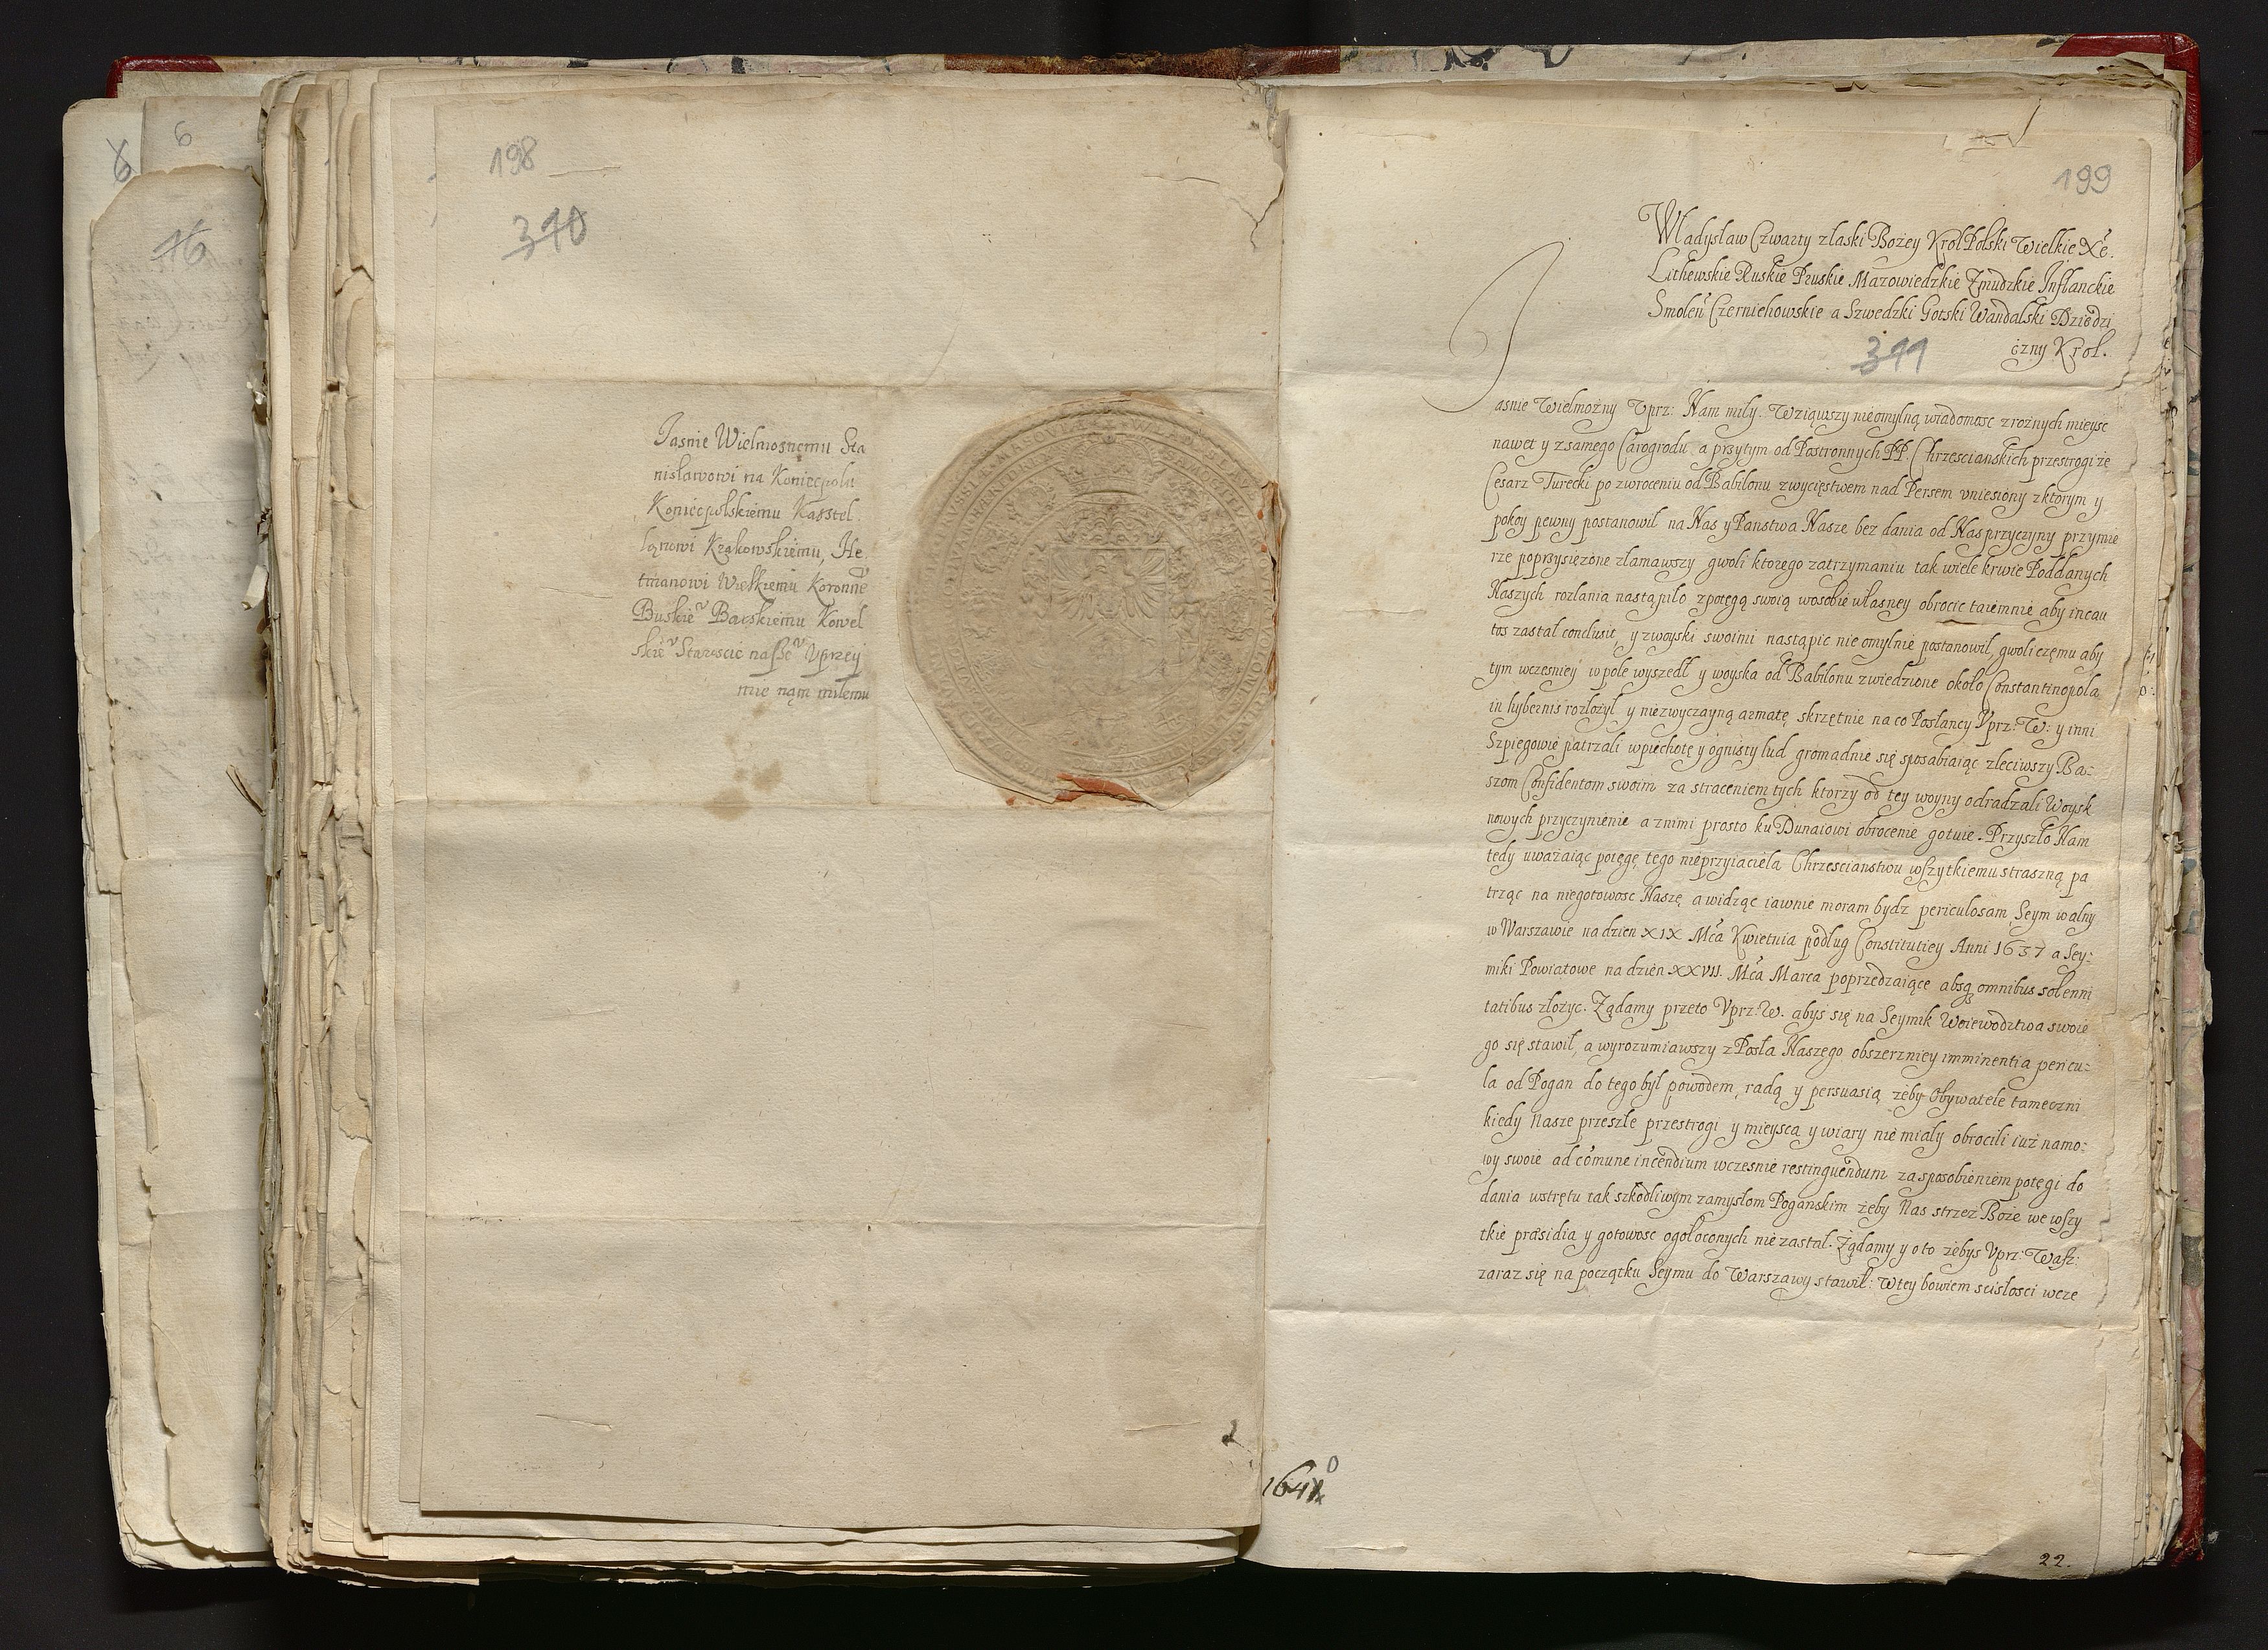 6
6
16
198
340
Jasnie Wielmosnemu Sta
nisławowi na Koniecpolu
Koniecpolskiemu Kasstel
ląnowi Krakowskiemu, He
tmanowi Wielkiemu Koronne
Buskie Barskiemu Kowel
skie Staroscie naſze Vprzey
mie nąm miłemu
2
199
Władysław Czwarty z łaski Bożey Krol Polski Wielkie Xe.
Lithewskie Ruskie Pruskie Mazowiedzkie Żmudzkie Inflanckie
Smolen Czerniehowskie a Szwedzki Gotski Wandalski Dziedzi
czny Krol.
341
Jasnie Wielmożny Vprz: Nam miły. Wziąwszy nieomylną wiadomosc z rożnych mieysc
nawet y z samego Carogrodu, a przytym od Postronnych PP. Chrzescianskich przestrogi że
Cesarz Turecki po zwroceniu od Babilonu zwycięstwem nad Persem vniesiony z ktorym y
pokoy pewny postanowił na Nas y Panstwa Nasze bez dania od Nas przyczyny przymie
rze poprzysiężone złamawszy gwoli ktorego zatrzymaniu tak wiele krwie Poddanych
Naszych rozlania nastąpiło z potęgą swoią w osobie własney obrocic taiemnie aby incau
tos zastał conclusit, y z woyski swoimi nastąpic nie omylnie postanowił, gwoli czemu aby
tym wczesniey w pole wyszedł y woyska od Babilonu zwiedzione około Constantinopola
in hybernis rozłożył y niezwyczayną armatę skrzętnie na co Posłancy Vprz: W: y inni
Szpiegowie patrzali w piechotę y ognisty lud gromadnie się sposabiaiąc zleciwszy Ba:
szom Confidentom swoim za straceniem tych ktorzy od tey woyny odradzali Woysk
nowych przyczynienie a z nimi prosto ku Dunaiowi obrocenie gotuie. Przyszło Nam
tedy uważaiąc potęgę tego nieprzyiaciela Chrzescianstwu wſzytkiemu straszną pa
trząc na niegotowosc Naszę a widząc iawnie moram bydz periculosam Seym walny
w Warszawie na dzien XIX Mca Kwietnia podług Constitutiey Anni 1637 a Sey:
miki Powiatowe na dzien XXVII. Mca Marca poprzedzaiące absq omnibus solenni
tatibus złożyc. Ządamy przeto Vprz: W. abys się na Seymik Woiewodztwa swoie
go się stawił, a wyrozumiawszy z Posła Naszego obszerzniey imminentia pericu:
la od Pogan do tego był powodem, radą y persuasią żeby Obywatele tameczni
kiedy Nasze przeszłe przestrogi y mieysca y wiary nie miały obrocili iuż namo:
wy swoie ad comune incendium wczesnie restinguendum za sposobieniem potęgi do
dania wstrętu tak szkodliwym zamysłom Poganskim żeby Nas strzeż Boże we wſzy
tkie præsidia y gotowosc ogołoconych nie zastał. Ządamy y o to żebys Vprz: Waſz:
zaraz się na początku Seymu do Warszawy stawił: W tey bowiem scisłosci wcze
1641
0
22.